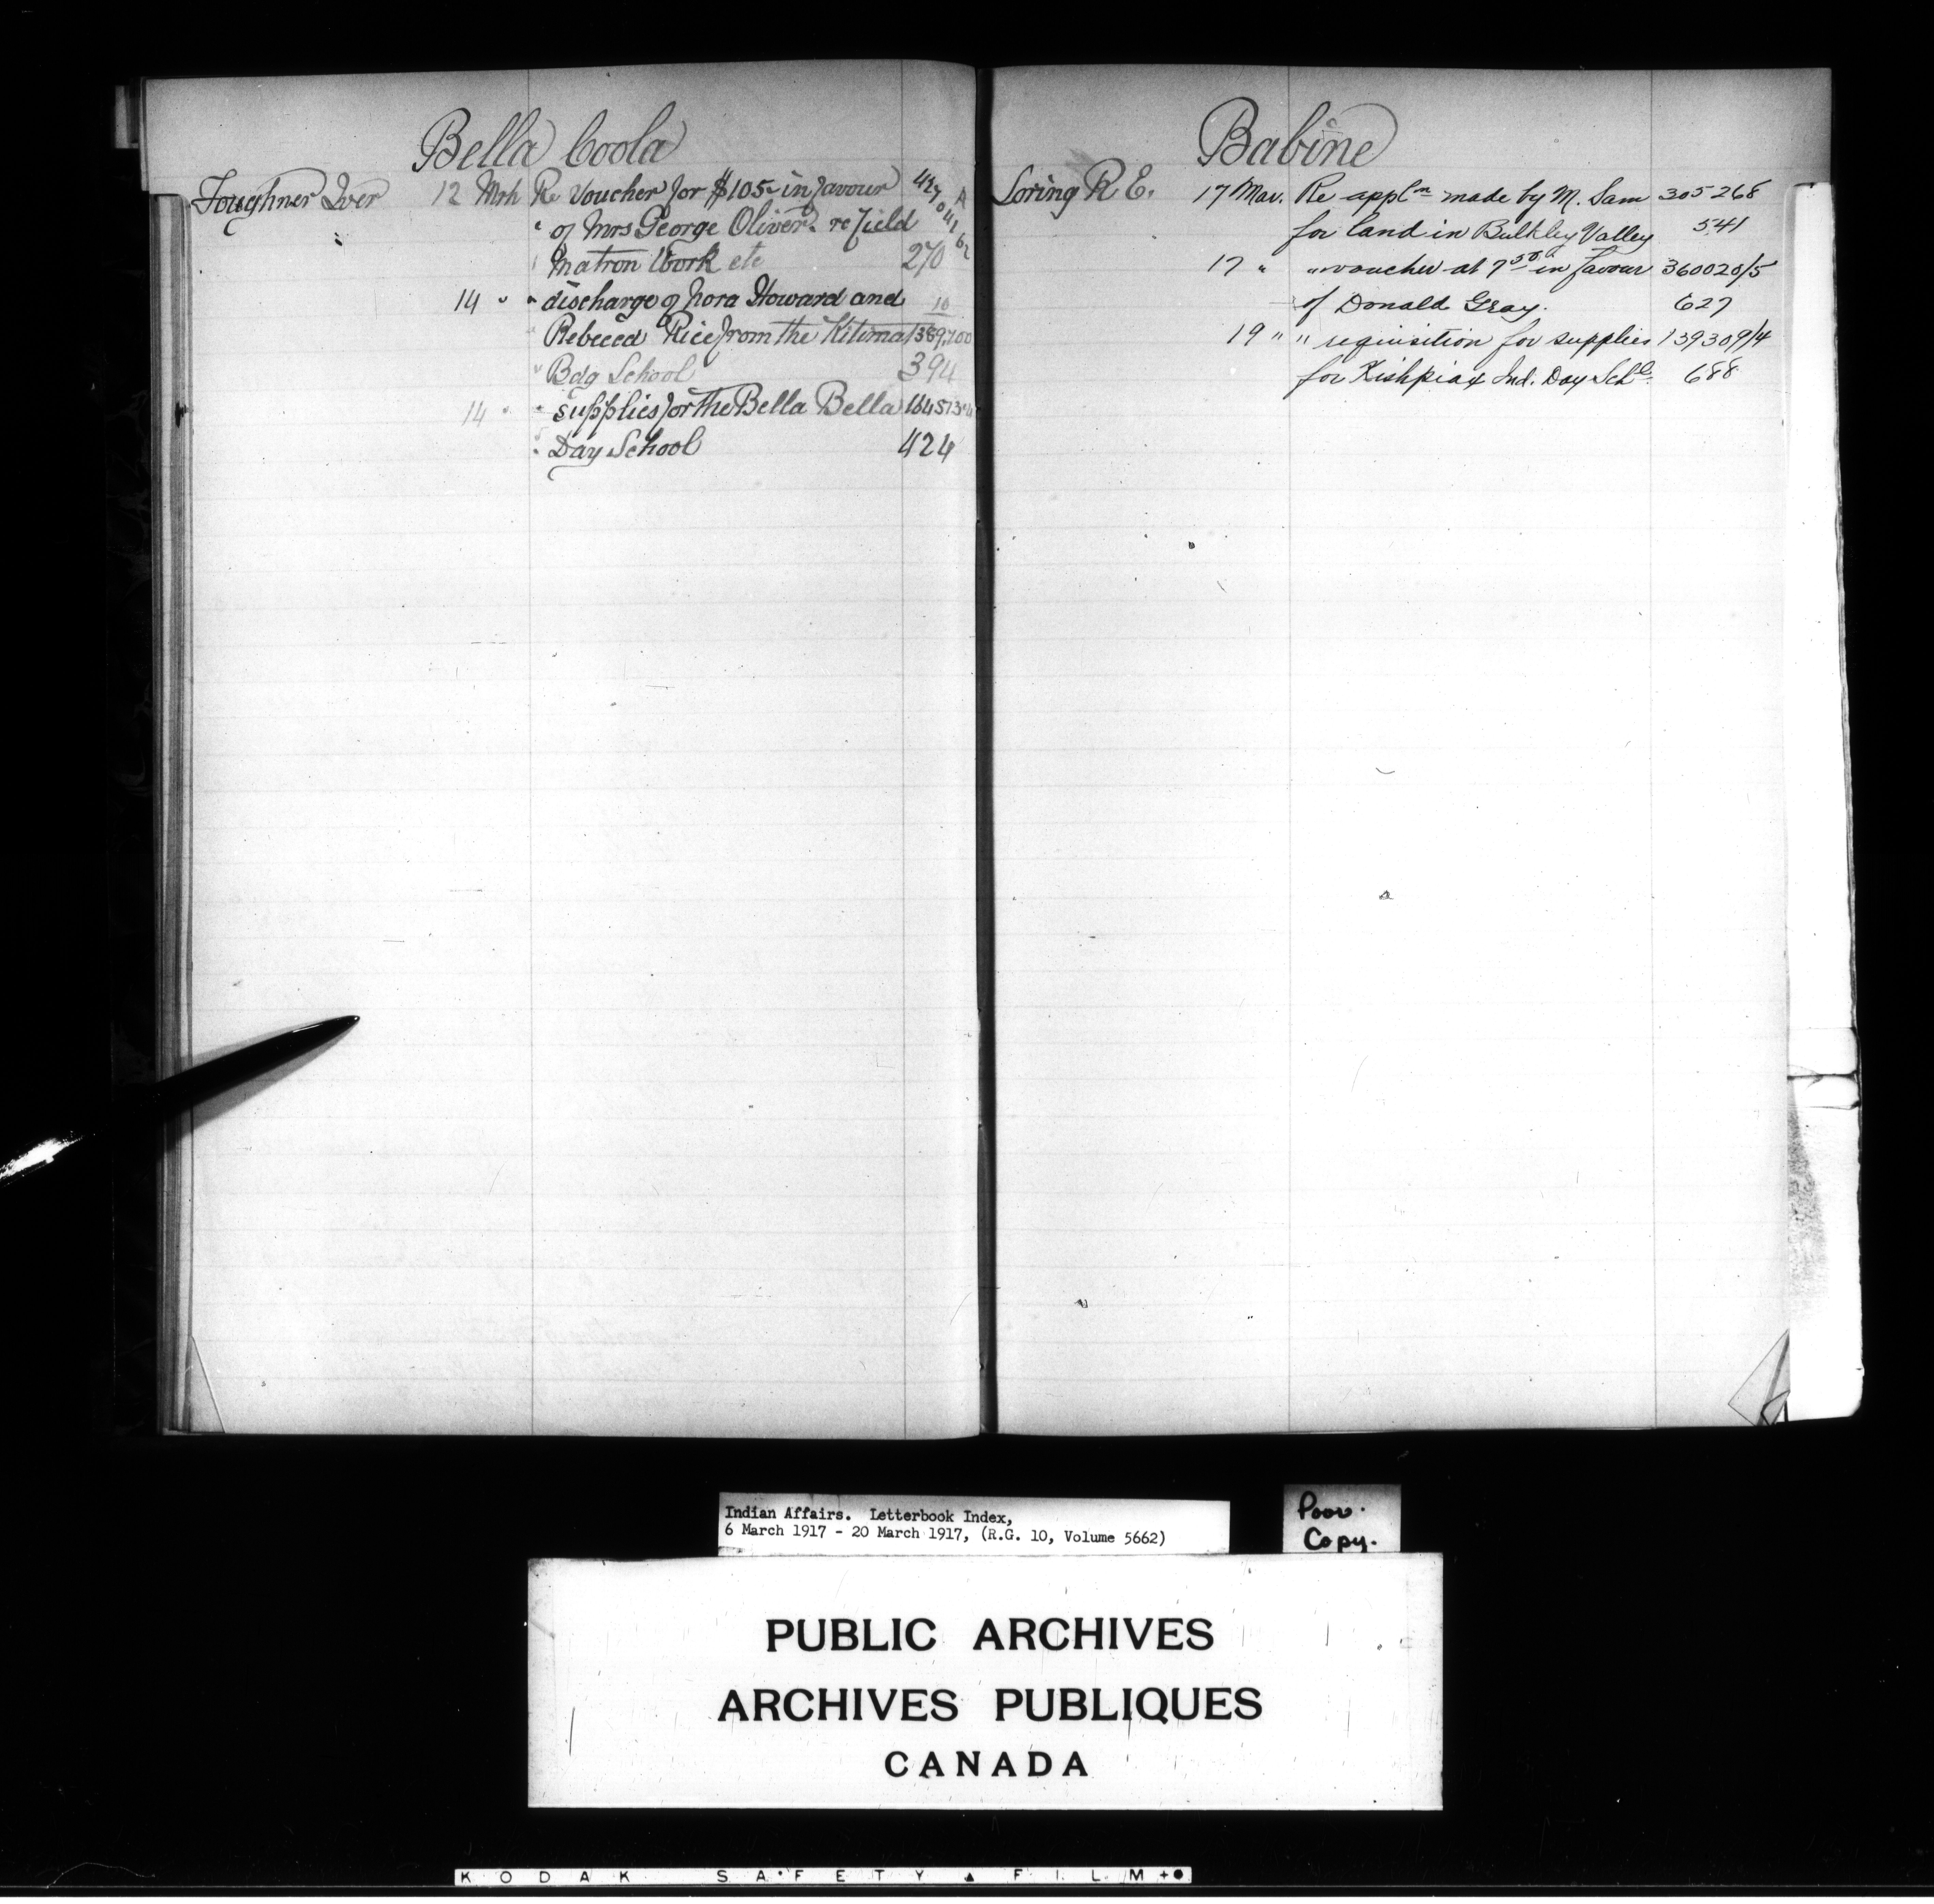 Bella Coola
Foughner Iver 12 Mrh Re Voucher for $105 in favour
" of Mrs George Oliver re Field
Matron Work etc 270
14 " " discharge of Nora Howard and 10
Rebecca Rice from the Kitimat 389,700
" Bdg School 394
14 " " supplies for the Bella Bella
Day School 424
Babine
Loring R E. 17 Mar. Re appl'n made by M. Sam 305268
for land in Bulkley Valley 541
17 " " voucher at 7 50 in favour 360020/5
of Donald Gray. 627
19 " " requisition for supplies 139309/4
for Kishpiax Ind. Day Schl. 688
Indian Affairs. Letterbook Index,
6 March 1917 - 20 March 1917, (R.G. 10, Volume 5662)
Poor
Copy.
PUBLIC ARCHIVES
ARCHIVES PUBLIQUES
CANADA
KODAK SAFETY FILM